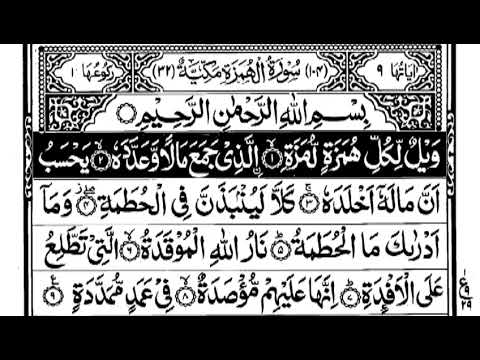 اٰیَاتُهَا ٩ (١٠٤) سُوْرَةُ الْهُمَزَةِ مَكِّیَّةٌ (٣٢) رُكُوْعُهَا ١
بِسْمِ اللّٰهِ الرَّحْمٰنِ الرَّحِیْمِ
وَیْلٌ لِّكُلِّ هُمَزَةٍ لُّمَزَةِ ١ الَّذِیْ جَمَعَ مَالًا وَّعَدَّدَهٗ ٢ یَحْسَبُ
اَنَّ مَالَهٗۤ اَخْلَدَهٗ ٣ كَلَّا لَیُنْۢبَذَنَّ فِی الْحُطَمَةِ ٤ وَمَاۤ
اَدْرٰىكَ مَا الْحُطَمَةُ ٥ نَارُ اللّٰهِ الْمُوْقَدَةُ ٦ الَّتِیْ تَطَّلِعُ
عَلَى الْاَفْـِٕدَةِ ٧ اِنَّهَا عَلَیْهِمْ مُّؤْصَدَةٌ ٨ فِیْ عَمَدٍ مُّمَدَّدَةٍ ٩
ع ٩ ٢٩